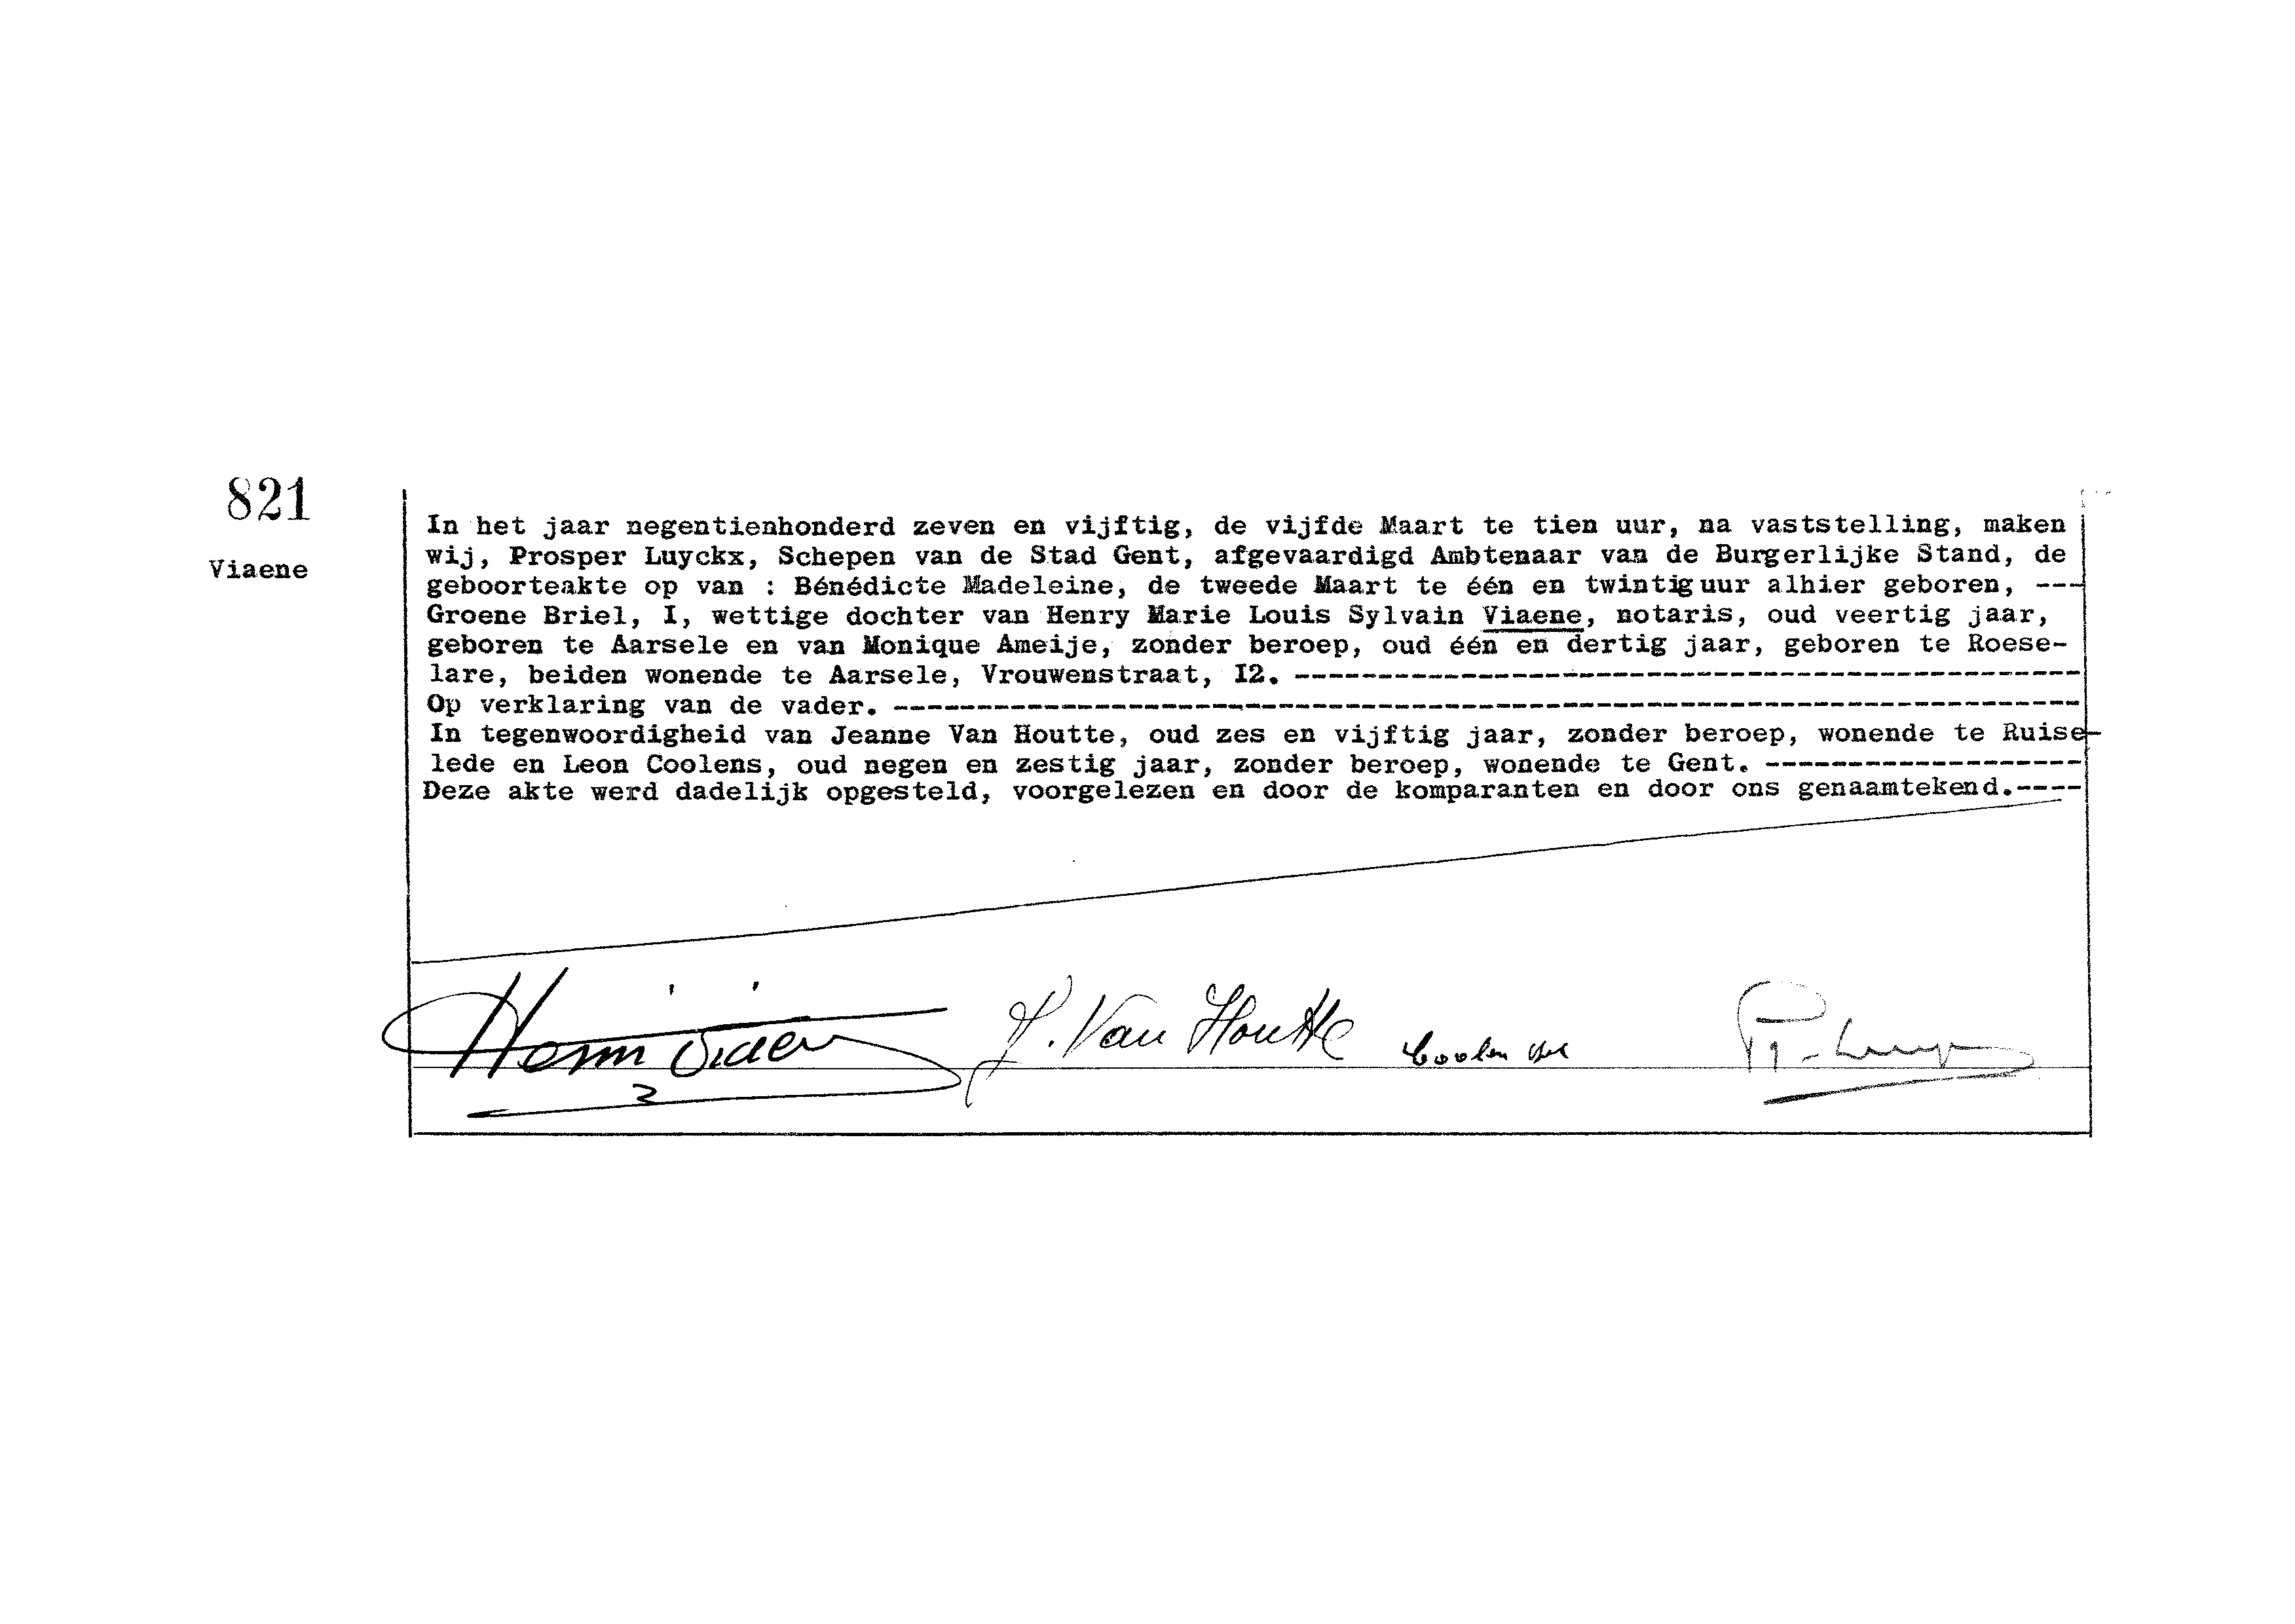 821
Viaene
In het jaar negentienhonderd zeven en vijftig, de vijfde Maart te tien uur, na vaststelling, maken
wij, Prosper Luyckx, Schepen van de Stad Gent, afgevaardigd Ambtenaar van de Burgerlijke Stand, de
geboorteakte op van : Bénédicte Madeleine, de tweede Maart te één en twintig uur alhier geboren, ---
Groene Briel, I, wettige dochter van Henry Marie Louis Sylvain Viaene, notaris, oud veertig jaar,
geboren te Aarsele en van Monique Ameije, zonder beroep, oud één en dertig jaar, geboren te Roese-
lare, beiden wonende te Aarsele, Vrouwenstraat, I2. -----------------------------------------------
Op verklaring van de vader. -----------------------------------------------------------------------
In tegenwoordigheid van Jeanne Van Houtte, oud zes en vijftig jaar, zonder beroep, wonende te Ruise-
lede en Leon Coolens, oud negen en zestig jaar, zonder beroep, wonende te Gent. -------------------
Deze akte werd dadelijk opgesteld, voorgelezen en door de komparanten en door ons genaamtekend.----
J. Van Houtte